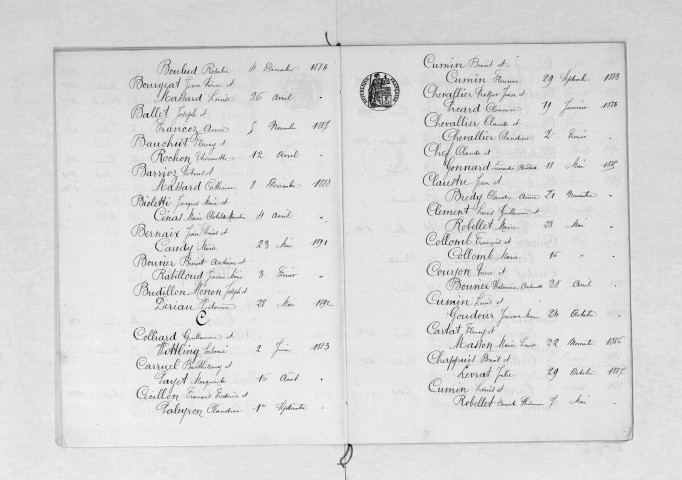 Bouleud Rosalie 4 Decembre 1886
Bourgeat Jean Pierre et
Massard Louise 26 Avril "
Ballet Joseph et
Francoz Anne 5 Novembre 1887
Bauchuit Fleury et
Rochon 12 Avril "
Barrioz et
Massard Catherine 8 Decembre 1888
Bioletti Jacques Marie et
Cinas Marie 4 Avril "
Bernaix Jean Louis et
Caudy Marie 23 Mai 1891
Bouvier Benoît Antoine et
Rabilloud Jeanne Marie 3 Fevrier "
Budillon Monon Joseph et
Dorian Victorine 28 Mai 1892
C
Colliard Guillaume et
Wittling Salomé 2 Juin 1883
Carruel Barthélemy et
Payet Marguerite 15 Août "
Cecillon François Frederic et
Paleyron Claudine 1er Septembre "
Cumin Benoît et
Cumin Fleurine 29 Septembre 1883
Chevallier Prosper Jean et
Picard 19 Janvier
Chevallier Claude et
Chevallier Claudine 2 Fevrier "
Chef Claude et
Gonnard 11 Mai 1885
Claustre Jean et
Bredy Claudine Anne 21 Novembre "
Clement Louis Guillaume et
Robellet Marie 23 Mai "
Collomb François et
Collomb Marie 16 " "
Courjon Pierre et
Bouvier 25 Avril "
Cumin Louis et
Goudour Jeanne Marie 24 Octobre "
Cartat Fleury et
Masson Marie Louise 22 Novembre 1886
Chappuis Benoît et
Levrat Julie 29 Octobre 1887
Cumin Louis et
Robellet 7 Mai "